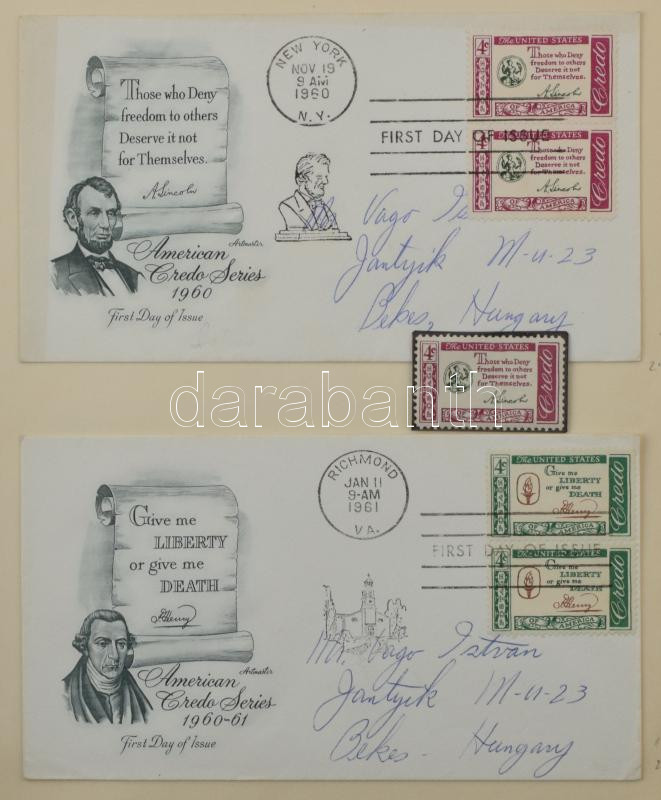 Those who Deny
freedom to others
Deserve it not
for Themselves.
A. Lincoln
Artmaster
American
Credo Series
1960
First Day of Issue
NEW YORK
NOV 19
9 AM
1960
N.Y.
FIRST DAY OF ISSUE
4¢ The UNITED STATES
Those who Deny
freedom to others
Deserve it not
for Themselves.
A. Lincoln
OF AMERICA
Credo
4¢ The UNITED STATES
Those who Deny
freedom to others
Deserve it not
for Themselves.
A. Lincoln
OF AMERICA
Credo
Mr. Vago
Jantyik M-u-23
Bekes, Hungary
4¢ The UNITED STATES
Those who Deny
freedom to others
Deserve it not
for Themselves.
A. Lincoln
OF AMERICA
Credo
darabanth
Give me
LIBERTY
or give me
DEATH
P. Henry
Artmaster
American
Credo Series
1960-61
First Day of Issue
RICHMOND
JAN 11
9-AM
1961
VA.
FIRST DAY OF ISSUE
4¢ The UNITED STATES
Give me
LIBERTY
or give me
DEATH
P. Henry
OF AMERICA
Credo
4¢ The UNITED STATES
Give me
LIBERTY
or give me
DEATH
P. Henry
OF AMERICA
Credo
Mr. Vago Istvan
Jantyik M-u-23
Bekes - Hungary